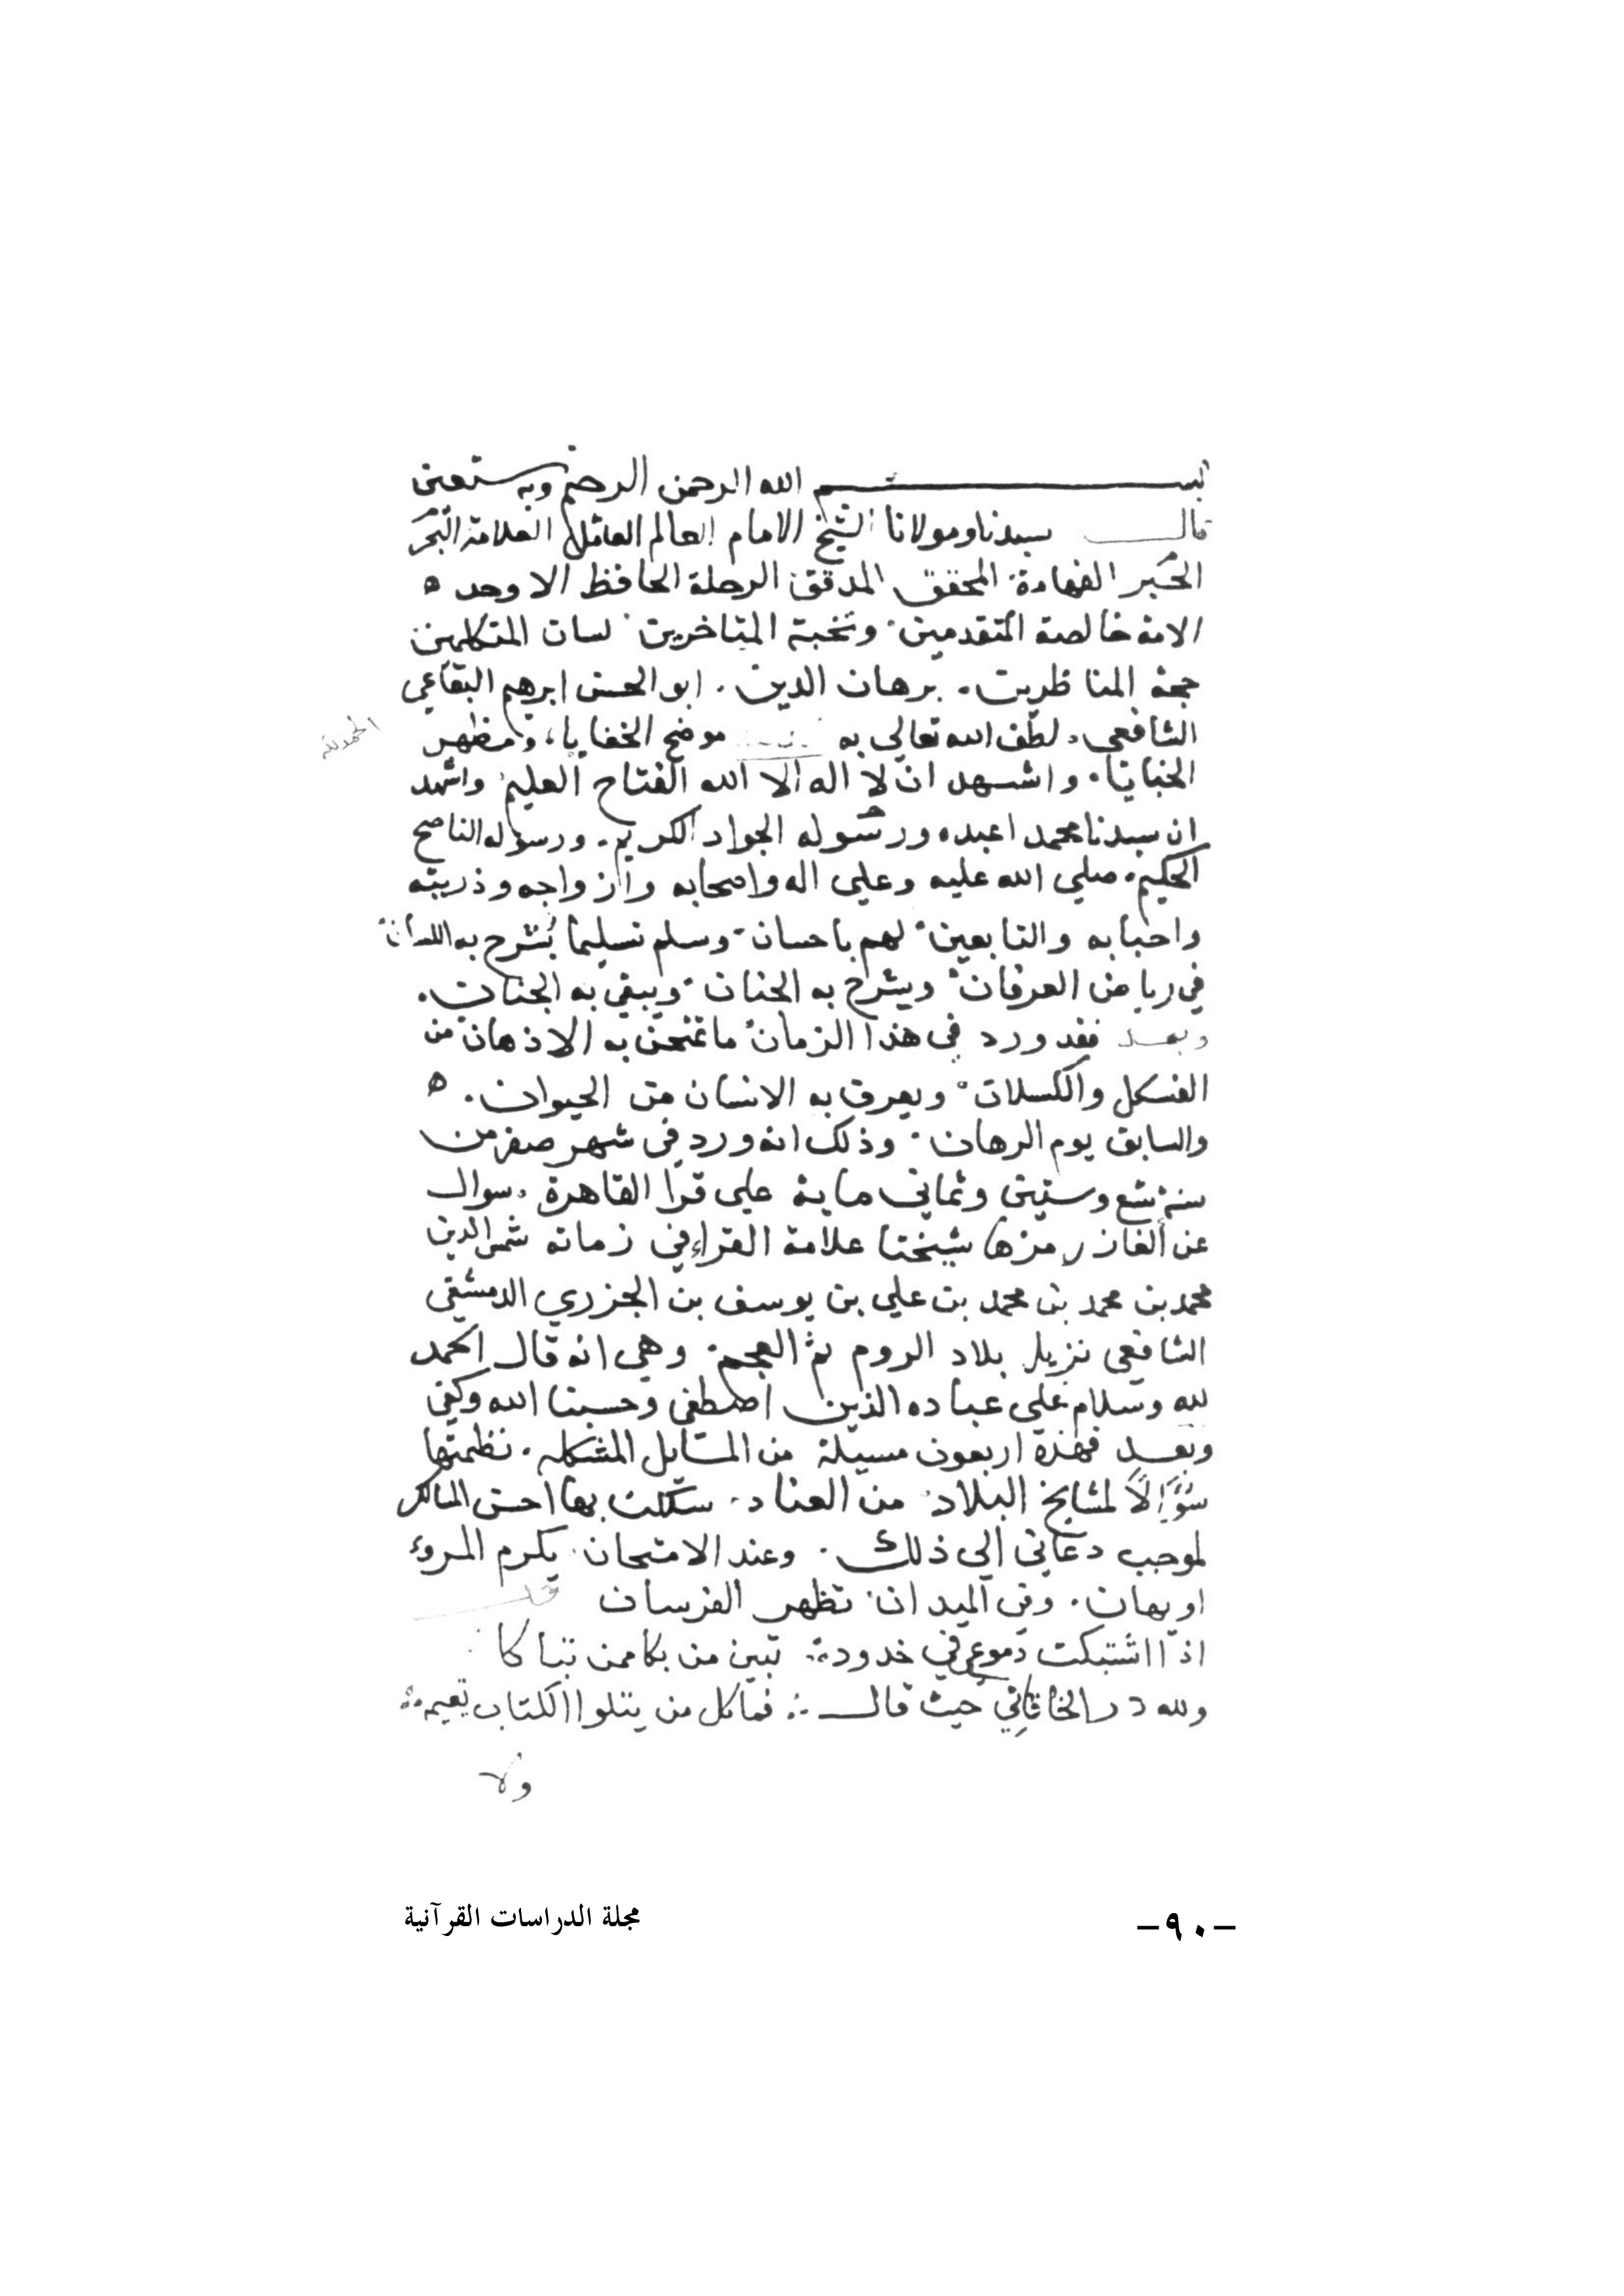 بسم الله الرحمن الرحيم وبه نستعين
قال سيدنا ومولانا الشيخ الامام العالم العامل العلامة البحر
الحبر الفهامة المحقق المدقق الرحلة الحافظ الاوحد ه
الامة خالصة المتقدمين ونخبة المتاخرين لسان المتكلمين
حجة المناظرين. برهان الدين. ابو الحسن ابرهيم البقاعي
الشافعي. لطف الله تعالي به موضح الخفايا، ومظهر
الحمد لله
الخبايا. واشهد ان لا اله الا الله الفتاح العليم واشهد
ان سيدنا محمدا عبده ورسوله الجواد الكريم. ورسوله الناصح
الحكيم. صلي الله عليه وعلي اله واصحابه وازواجه وذريته
واحبابه والتابعين لهم باحسان وسلم تسليما يشرح به اللدان
في رياض العرفان ويشرح به الجنان ويبقي به الجنان.
وبعد فقد ورد في هذا الزمان ما تمتحن به الاذهان من
الفسكل والكسلان ويعرف به الانسان من الحيوان. ه
والسابق يوم الرهان. وذلك انه ورد في شهر صفر من
سنة تسع وستين وثماني ماية علي قرا القاهرة. سوال
عن ألغاز رمزها شيخنا علامة القراء في زمانه شمس الدين
محمد بن محمد بن محمد بن علي بن يوسف بن الجزري الدمشقي
الشافعي نزيل بلاد الروم ثم العجم. وهي انه قال الحمد
لله وسلام علي عباده الذين اصطفي وحسبنا الله وكفي
وبعد فهذه اربعون مسيلة من المسايل المشكله. نظمتها
سؤالا لمشايخ البلاد من العناد. سلكت بها احسن المسالك
لموجب دعاني الي ذلك. وعند الامتحان يكرم المروء
او يهان. وفي الميدان تظهر الفرسان
اذا اشتبكت دموع في خدود تبين من بكا ممن تباكا
ولله در الخاقاني حيث قال فما كل من يتلوا الكتاب يقيمه
ولا
-٩٠-
مجلة الدراسات القرآنية